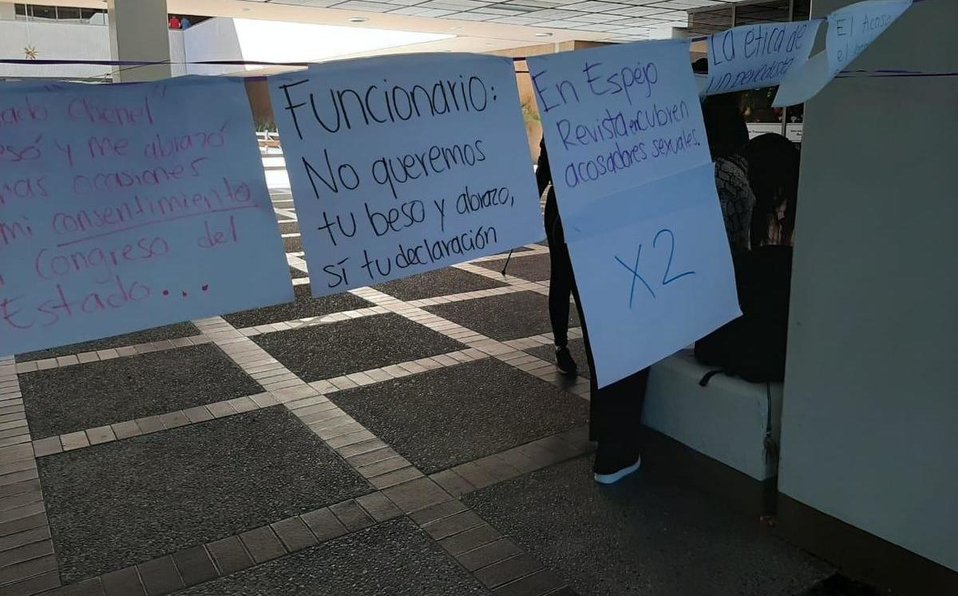 Chenel"
y me abrazó
ocasiones
mi consentimiento
Congreso del
Estado...
Funcionario:
No queremos
tu beso y abrazo,
sí tu declaración
En Espejo
Revista encubren
acosadores sexuales.
X2
La ética de
un periodista
El Acoso